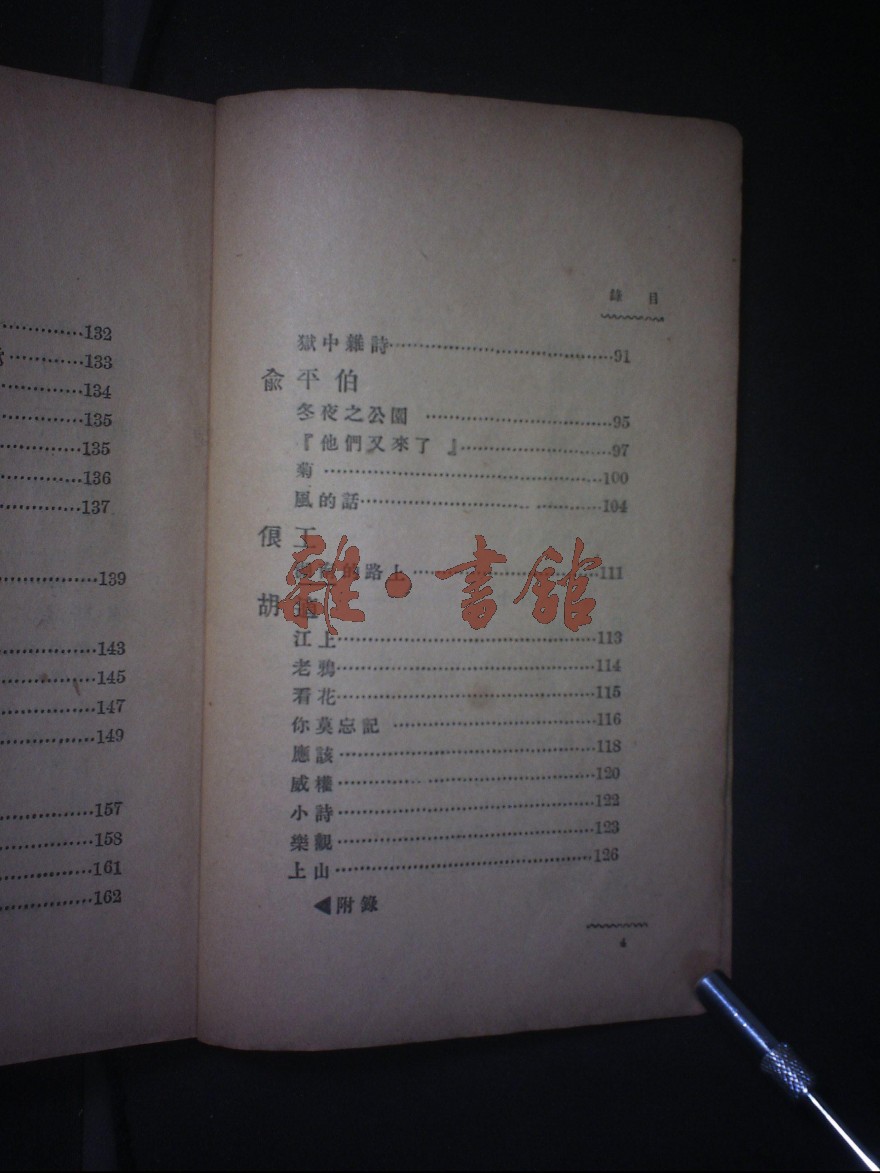 132
133
134
135
135
136
137
139
143
145
147
149
157
158
161
162
錄 目
獄中雜詩……91
俞平伯
冬夜之公園……95
『他們又來了』……97
菊……100
風的話……104
俍工
的路上……111
胡適
江上……113
老鴉……114
看花……115
你莫忘記……116
應該……118
威權……120
小詩……122
樂觀……123
上山……126
◀附錄
4
雜·書館